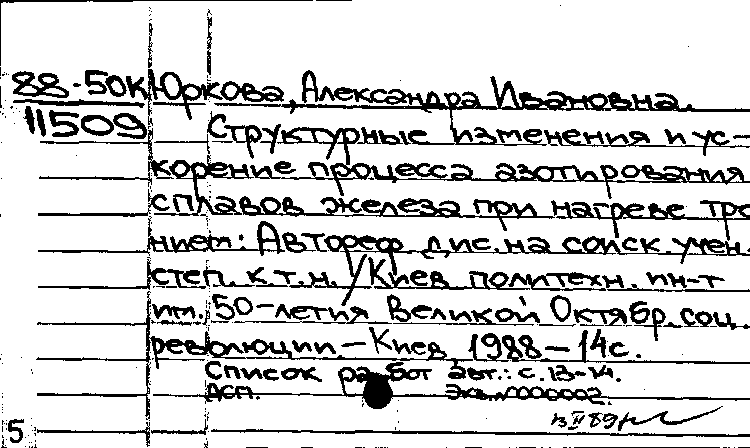 88-50К Юркова, Александра Ивановна.
11509 Структурные изменения и ус-
корение процесса азотирования
сплавов железа при нагреве тре
нием: Автореф. дис. на соиск. учен.
степ. к.т.н. / Киев. политехн. ин-т
им. 50-летия Великой Октябр. соц.
революции. - Киев, 1988 - 14с.
Список работ авт.: с. 13-14.
ДСП. Экз. N000002.
89
5